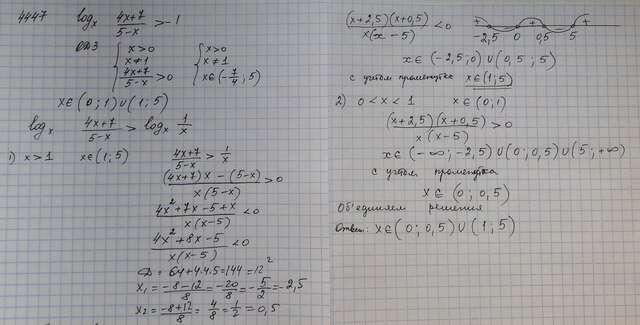 4447 log_x (4x+7)/(5-x) > -1
ОДЗ { x>0 { x>0
x≠1 x≠1
(4x+7)/(5-x) > 0 x∈(-7/4; 5)
x∈(0; 1)∪(1; 5)
log_x (4x+7)/(5-x) > log_x 1/x
1) x>1 x∈(1; 5) (4x+7)/(5-x) > 1/x
((4x+7)x-(5-x))/(x(5-x)) > 0
(4x²+7x-5+x)/(x(x-5)) < 0
(4x²+8x-5)/(x(x-5)) < 0
D = 64+4·4·5=144=12²
x₁ = (-8-12)/8 = -20/8 = -5/2 = -2,5
x₂ = (-8+12)/8 = 4/8 = 1/2 = 0,5
(x+2,5)(x+0,5)/(x(x-5)) < 0 + - + - +
-2,5 0 0,5 5
x∈(-2,5; 0)∪(0,5; 5)
с учётом промежутка x∈(1; 5)
2) 0<x<1 x∈(0; 1)
(x+2,5)(x+0,5)/(x(x-5)) > 0
x∈(-∞; -2,5)∪(0; 0,5)∪(5; +∞)
с учётом промежутка
x∈(0; 0,5)
Объединяем решения
Ответ: x∈(0; 0,5)∪(1; 5)